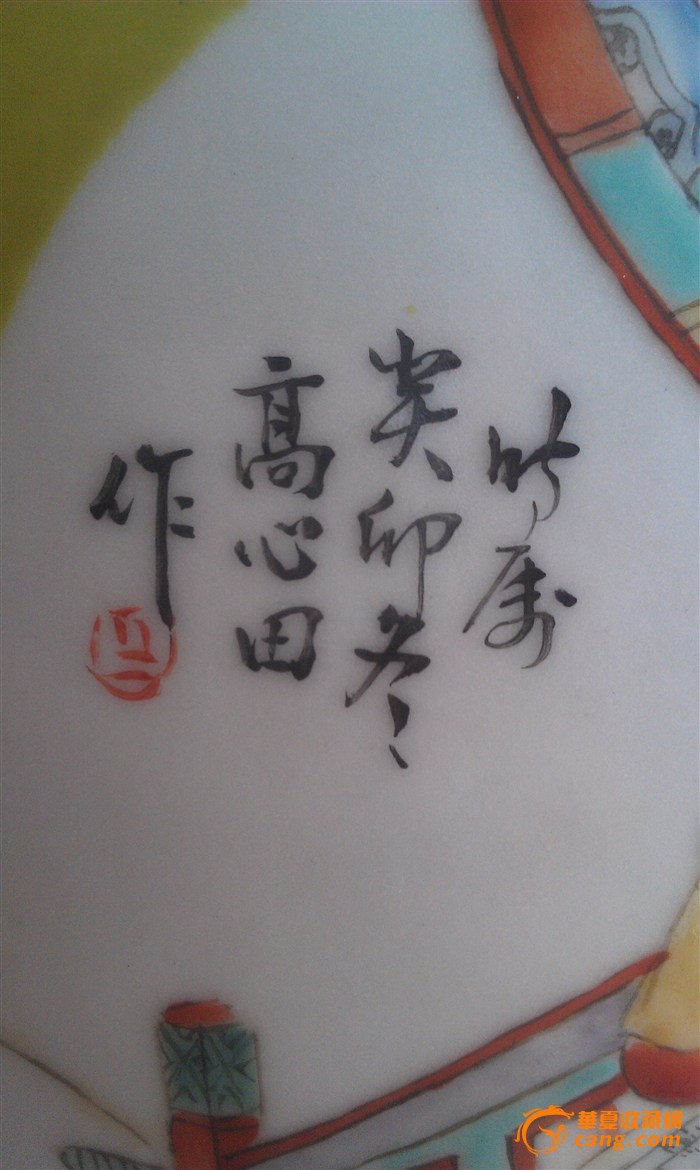 时属
癸卯冬
高心田
作
華夏收藏網
cang.com